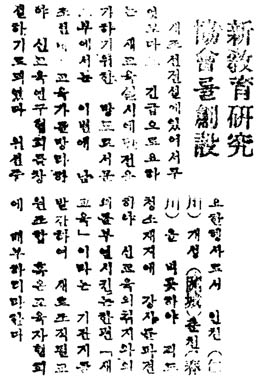 新敎育硏究
協會를創設
새조선건설에있어서무
엇보다도 긴급으로요하
는 새교육실시에만전을
가하기위한 방도로서문
교부에서는 이번에 남
조선에 교육가를망라하
야 신교육연구협회를창
설하기로되엿다 위선주
요한행사로서 인천(仁
川) 개성(開城)춘천(春
川)은 비롯하야 각도
청소재지에 강사를파견
하야 신교육의취지와의
의를부연시킨는한편『새
교육』이라는 기관지를
발간하여 새로조직된교
원조합 혹은교육자협회
에 배부하리라한다